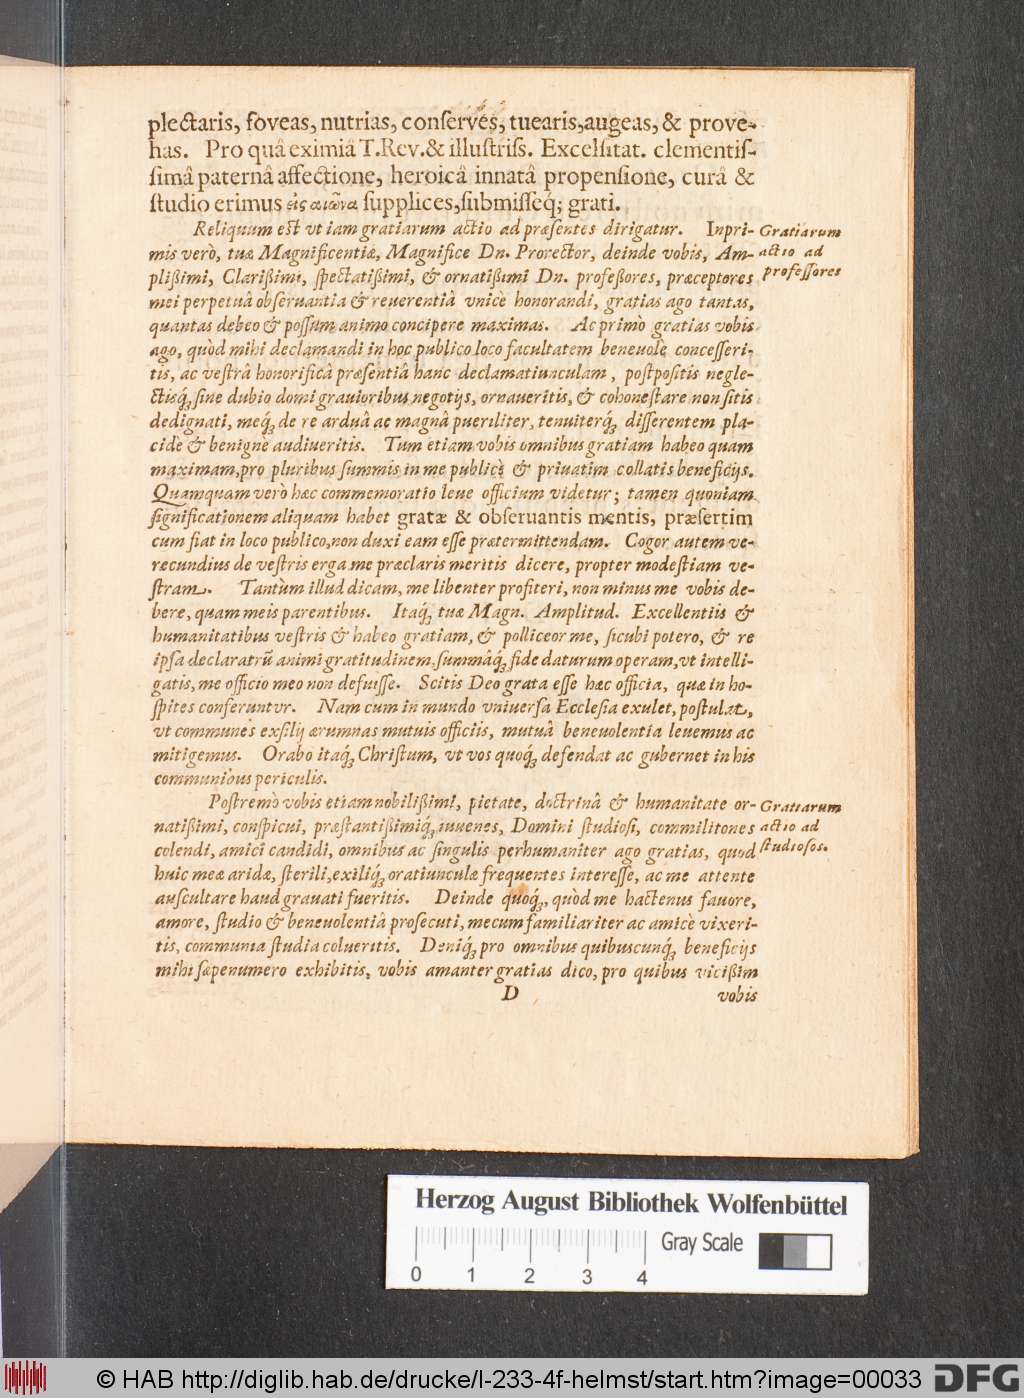 plectaris, foveas, nutrias, conserves, tuearis, augeas, & prove-
has. Pro quâ eximiâ T. Rev. & illustriss. Excelsitat. clementis-
simâ paternâ affectione, heroicâ innatâ propensione, curâ &
studio erimus εἰς αιῶνα supplices, submisseq́; grati.
Reliquum est vt iam gratiarum actio ad præsentes dirigatur. Inpri-
mis verò, tuæ Magnificentiæ, Magnifice Dn. Prorector, deinde vobis, Am-
plißimi, Clarißimi, spectatißimi, & ornatißimi Dn. profeßores, præceptores
mei perpetuâ obseruantia & reuerentiâ vnicè honorandi, gratias ago tantas,
quantas debeo & possum animo concipere maximas. Ac primò gratias vobis
ago, quòd mihi declamandi in hoc publico loco facultatem beneuolè concesseri-
tis, ac vestrâ honorificâ præsentiâ hanc declamatiunculam, postpositis negle-
ctisq́; sine dubio domi grauioribus negotijs, ornaueritis, & cohonestare non sitis
dedignati, meq́; de re arduâ ac magnâ pueriliter, tenuiterq́; disserentem pla-
cidè & benignè audiueritis. Tum etiam vobis omnibus gratiam habeo quam
maximam, pro pluribus summis in me publicè & priuatim collatis beneficijs.
Quamquam verò hæc commemoratio leue officium videtur; tamen quoniam
significationem aliquam habet gratæ & obseruantis mentis, præsertim
cum fiat in loco publico, non duxi eam esse prætermittendam. Cogor autem ve-
recundius de vestris erga me præclaris meritis dicere, propter modestiam ve-
stram. Tantùm illud dicam, me libenter profiteri, non minus me vobis de-
bere, quam meis parentibus. Itaq́; tuæ Magn. Amplitud. Excellentiis &
humanitatibus vestris & habeo gratiam, & polliceor me, sicubi potero, & re
ipsa declaraturũ animi gratitudinem, summâq́; fide daturum operam, vt intelli-
gatis, me officio meo non defuisse. Scitis Deo grata esse hæc officia, quæ in ho-
spites conferuntvr. Nam cum in mundo vniuersa Ecclesia exulet, postulat,
vt communes exsilij ærumnas mutuis officiis, mutuâ beneuolentia leuemus ac
mitigemus. Orabo itaq́; Christum, vt vos quoq́; defendat ac gubernet in his
communibus periculis.
Postremò vobis etiam nobilißimi, pietate, doctrinâ & humanitate or-
natißimi, conspicui, præstantißimiq́; iuuenes, Domini studiosi, commilitones
colendi, amici candidi, omnibus ac singulis perhumaniter ago gratias, quod
huic meæ aridæ, sterili, exiliq́; oratiunculæ frequentes interesse, ac me attente
auscultare haud grauati fueritis. Deinde quoq́;, quòd me hactenus fauore,
amore, studio & beneuolentiâ prosecuti, mecum familiariter ac amicè vixeri-
tis, communia studia colueritis. Deniq́; pro omnibus quibuscunq́; beneficijs
mihi sæpenumero exhibitis, vobis amanter gratias dico, pro quibus vicißim
D vobis
Gratiarum
actio ad
professores
Gratiarum
actio ad
studiosos.
Herzog August Bibliothek Wolfenbüttel
Gray Scale
0 1 2 3 4
© HAB http://diglib.hab.de/drucke/l-233-4f-helmst/start.htm?image=00033
DFG